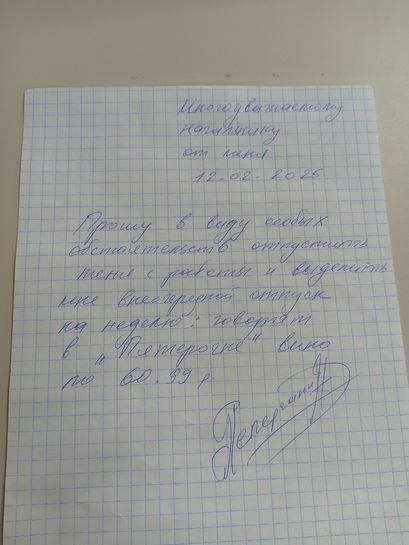 Многоуважаемому
начальнику
от меня
12.02.2025
Прошу в виду особых
обстоятельств отпустить
меня с работы и выделить
мне внеочередной отпуск
на неделю: говорят
в "Пятерочке" вино
по 60.99 р.